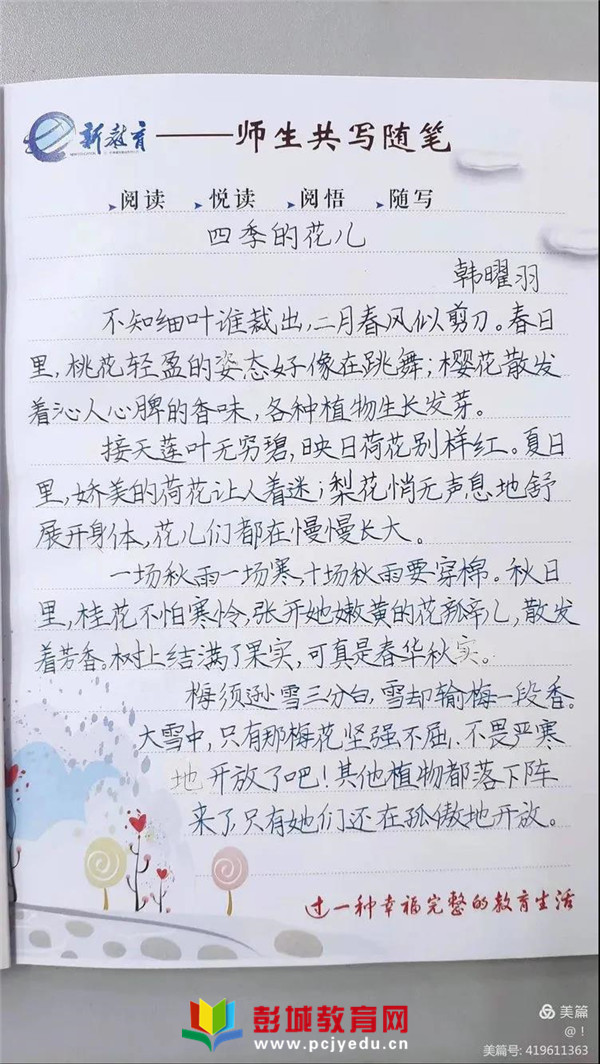 新教育——师生共写随笔
阅读 悦读 阅悟 随写
四季的花儿
韩曜羽
不知细叶谁裁出,二月春风似剪刀。春日
里,桃花轻盈的姿态好像在跳舞;樱花散发
着沁人心脾的香味,各种植物生长发芽。
接天莲叶无穷碧,映日荷花别样红。夏日
里,娇美的荷花让人着迷;梨花悄无声息地舒
展开身体,花儿们都在慢慢长大。
一场秋雨一场寒,十场秋雨要穿棉。秋日
里,桂花不怕寒怜,张开她嫩黄的花瓣儿,散发
着芳香。树上结满了果实,可真是春华秋实。
梅须逊雪三分白,雪却输梅一段香。
大雪中,只有那梅花坚强不屈、不畏严寒
地开放了吧!其他植物都落下阵
来了,只有她们还在孤傲地开放。
过一种幸福完整的教育生活
彭城教育网
www.pcjyedu.cn
美篇
@!
美篇号: 419611363